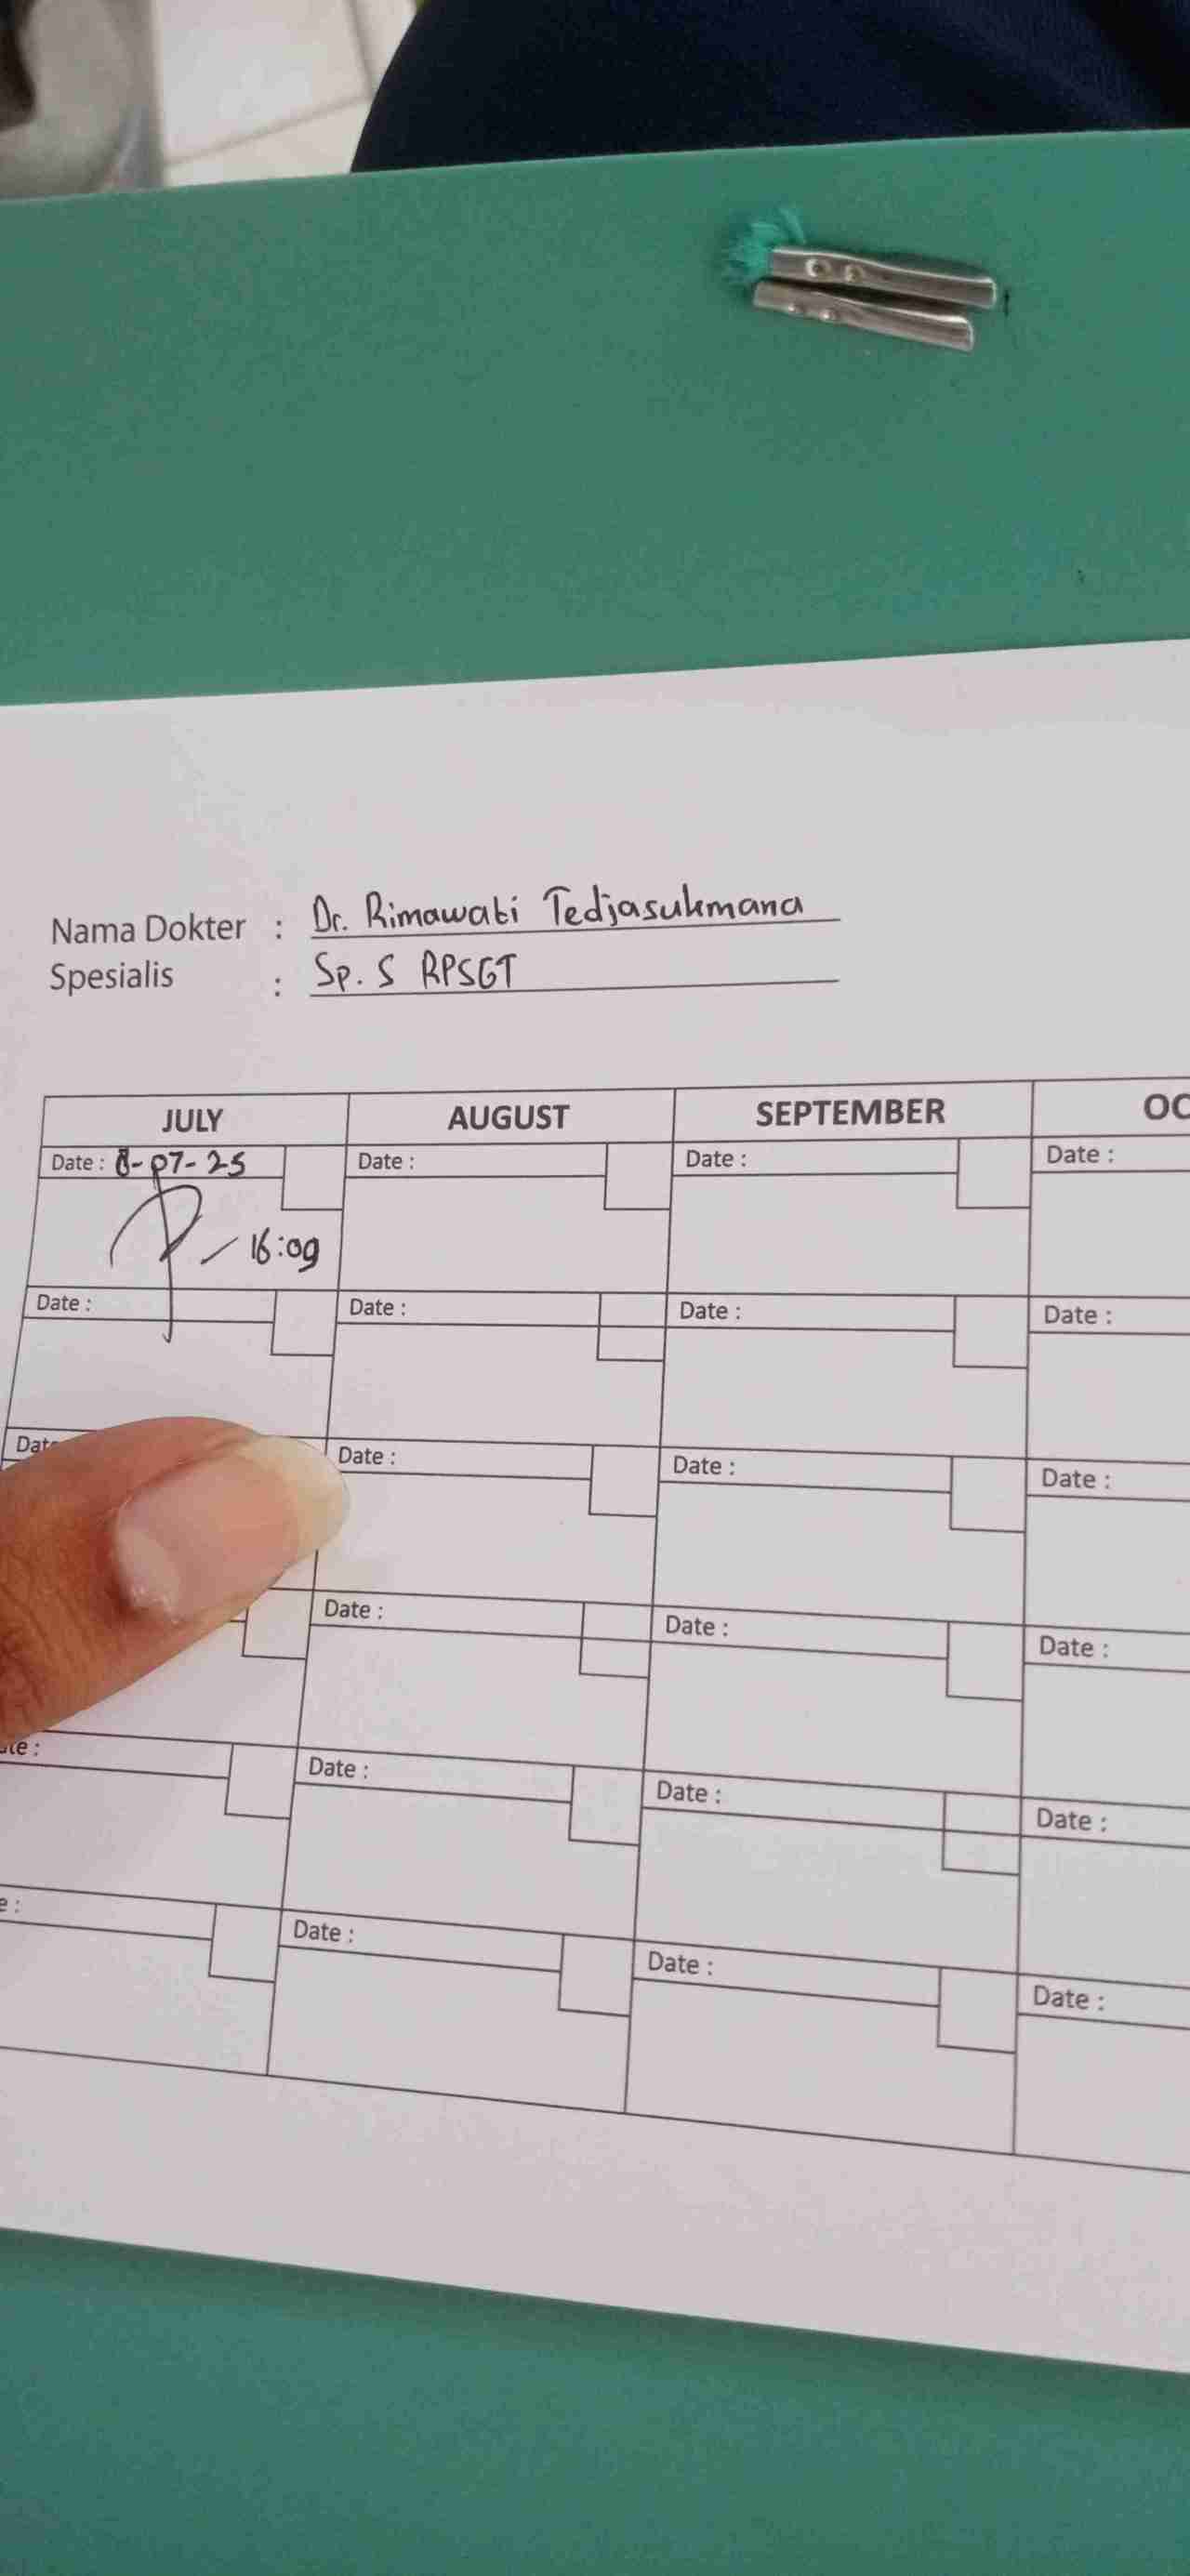 Nama Dokter : Dr. Rimawati Tedjasukmana
Spesialis : Sp. S RPSGT
JULY AUGUST SEPTEMBER OC
Date : 8-07-25 Date : Date : Date :
16:09
Date : Date : Date : Date :
Dat Date : Date : Date :
Date : Date : Date :
te : Date : Date : Date :
e : Date : Date : Date :